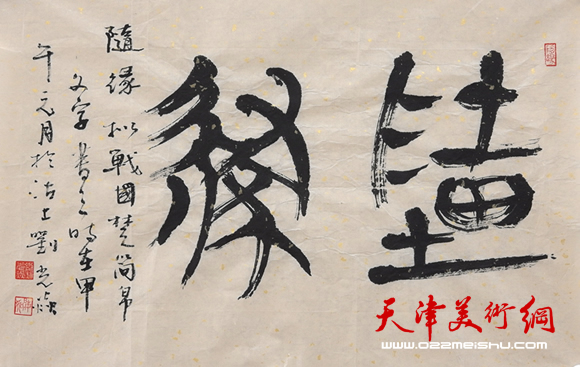 隨缘
隨缘 拟戰國楚简帛
文字书之 时在甲
午元月於沽上劉光啟
天津美術網
www.022meishu.com